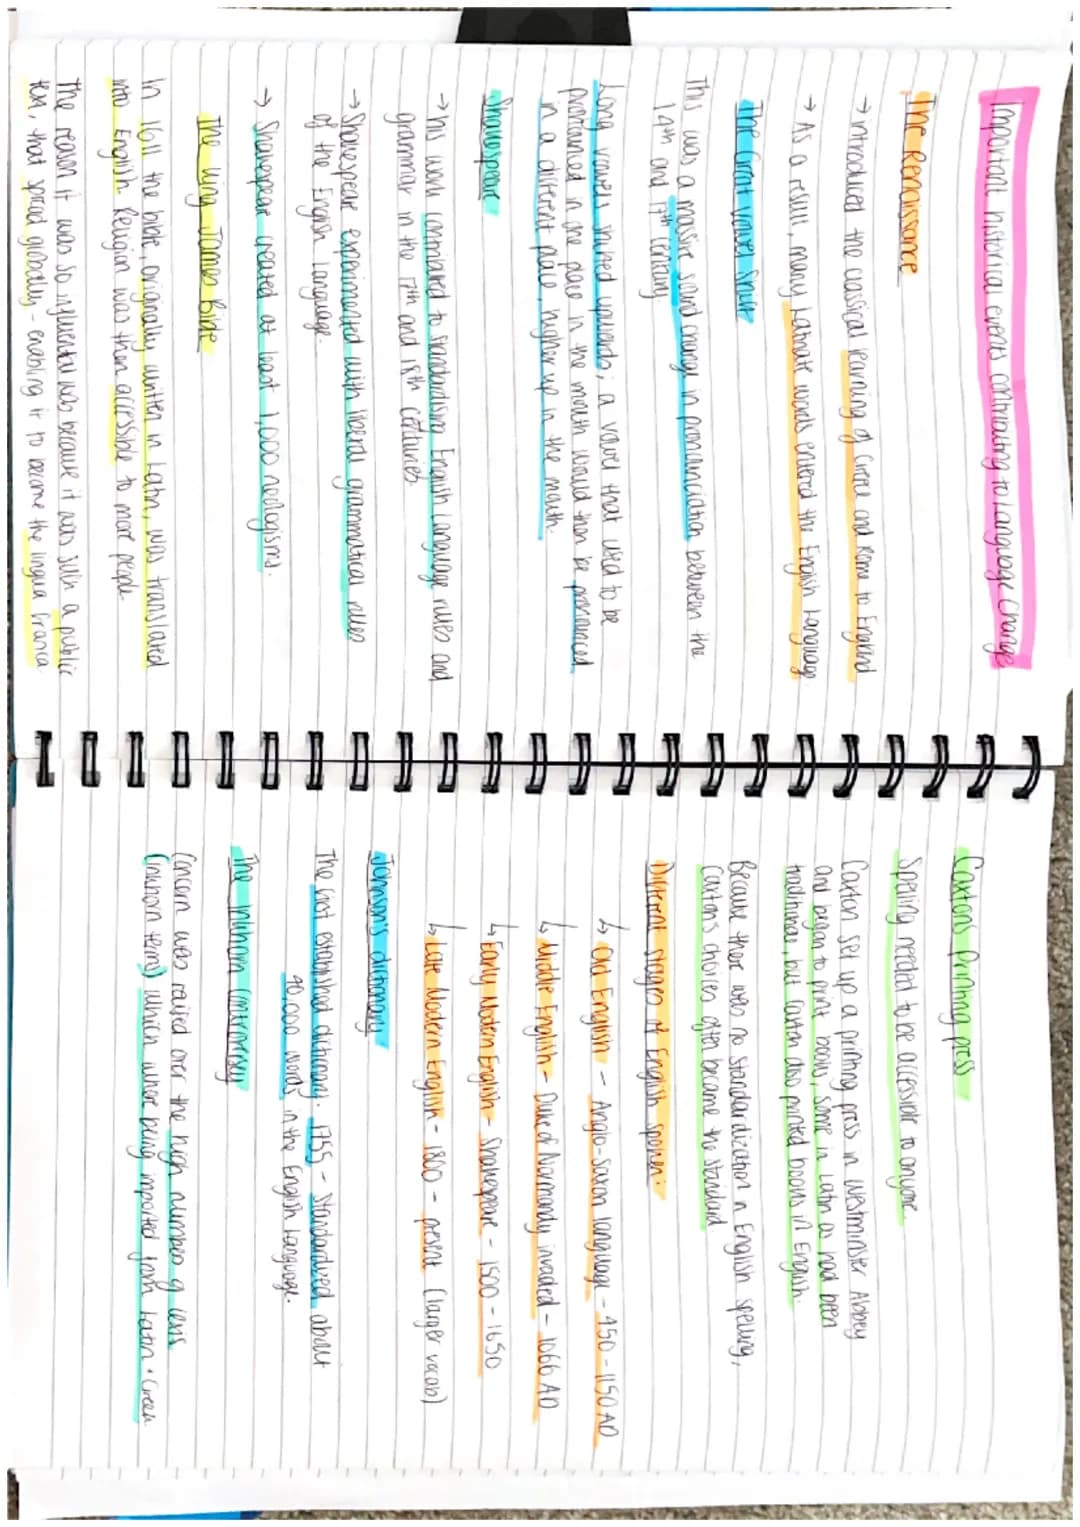 Important historical events contributing to Language Change
The Renaissance
→ introduced the classical learning of Greece and Rome to England
→ As a result, many Latinate words entered the English Language
The Great Vowel Shift
This was a massive sound change in pronunciation between the
14th and 17th century
Long vowels shifted upwards; a vowel that used to be
pronounced in one place in the mouth would then be pronounced
in a different place, higher up in the mouth.
Shakespeare
→ his work contributed to standardising English Language rules and
grammar in the 17th and 18th centuries.
→ Shakespeare experimented with liberal grammatical rules
of the English Language.
→ Shakespeare created at least 1,000 neologisms.
The King James Bible
In 1611 the bible, originally written in Latin, was translated
into English. Religion was then accessible to more people.
The reason it was so influential was because it was such a public
text, that spread globally - enabling it to become the lingua franca
Caxtons printing press
Spelling needed to be accessible to anyone.
Caxton set up a printing press in Westminster Abbey
and began to print books, some in Latin as had been
traditional, but Caxton also printed books in English.
Because there was no standardization in English spelling,
Caxton's choices often became the standard
Different stages of English spoken:
↳ Old English - Anglo-saxon language - 450 - 1150 AD
↳ Middle English - Duke of Normandy invaded - 1066 AD
↳ Early Modern English - Shakespeare - 1500 - 1650
↳ Late Modern English - 1800 - present (larger vocab)
Johnson's dictionary
The first established dictionary. 1755 - Standardized about
40,000 words in the English Language.
The Inkhorn Controversy
Concern was raised over the high number of lexis
(inkhorn terms) which where being imported from Latin + Greek